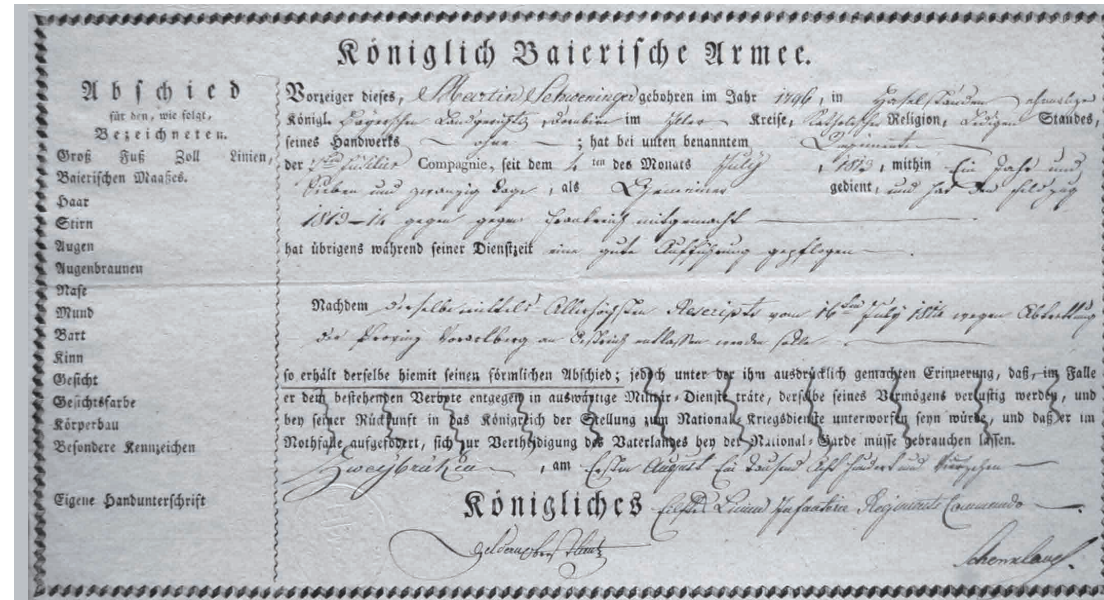 Königlich Baierische Armee.
Abschied
für den, wie folgt,
Bezeichneten.
Groß Fuß Zoll Linien,
Baierischen Maaßes.
Haar
Stirn
Augen
Augenbraunen
Nase
Mund
Bart
Kinn
Gesicht
Gesichtsfarbe
Körperbau
Besondere Kennzeichen
Eigene Handunterschrift
Vorzeiger dieses, Martin Schweninger gebohren im Jahr 1796, in Haselstauden ehemaligen
Königl. Bayerschen Landgerichts, Dornbirn im Iller Kreise, Katholischer Religion, Ledigen Standes,
seines Handwerks ohne; hat bei unten benanntem Regimente
der Füselier Compagnie, seit dem 4 ten des Monats July, 1813, mithin Ein Jahr und
Sieben und zwanzig Tage, als Gemeiner gedient, und hat den Feldzug
1813–14 gegen gegen Frankreich mitgemacht
hat übrigens während seiner Dienstzeit eine gute Aufführung gepflogen
Nachdem derselbe mittels Allerhöchsten Rescripts vom 16ten July 1814 wegen Abtrettung
der Provinz Vorarlberg an Östreich entlassen werden solle
so erhält derselbe hiemit seinen förmlichen Abschied; jedoch unter der ihm ausdrücklich gemachten Erinnerung, daß, im Falle
er dem bestehenden Verbote entgegen in auswärtige Militär-Dienste träte, derselbe seines Vermögens verlustig werden, und
bey seiner Rückkunft in das Königreich der Stellung zum National-Kriegsdienste unterworfen seyn würde, und daß er im
Nothfalle aufgefodert, sich zur Vertheidigung des Vaterlandes bey der National-Garde müsse gebrauchen lassen.
Zweybrücken, am Ersten August Ein Tausend Acht Hundert und Vierzehen
Königliches Linien Infanterie Regiments Commando